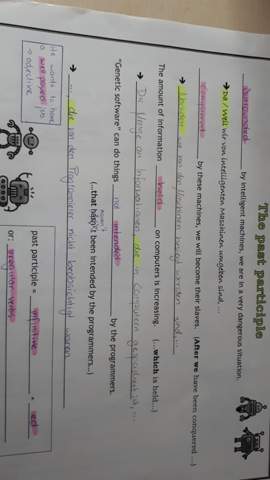 The past participle
Surrounded by intelligent machines, we are in a very dangerous situation.
→ Da/weil wir von intelligenten Maschinen umgeben sind, ...
Conquered by these machines, we will become their slaves. (After we have been conquered ...)
→ Nachdem wir von den Maschinen
The amount of information held on computers is increasing. (...which is held...)
→ Die Menge an Informationen, die in Computern
"Genetic software" can do things not intended by the programmers.
(...that hasn't been intended by the programmers...)
→ ..., die von den Programmierern nicht beabsichtigt waren
He wants to have
a well paid job
→ adjective
past participle = infinitive + -ed
or irregular verbs